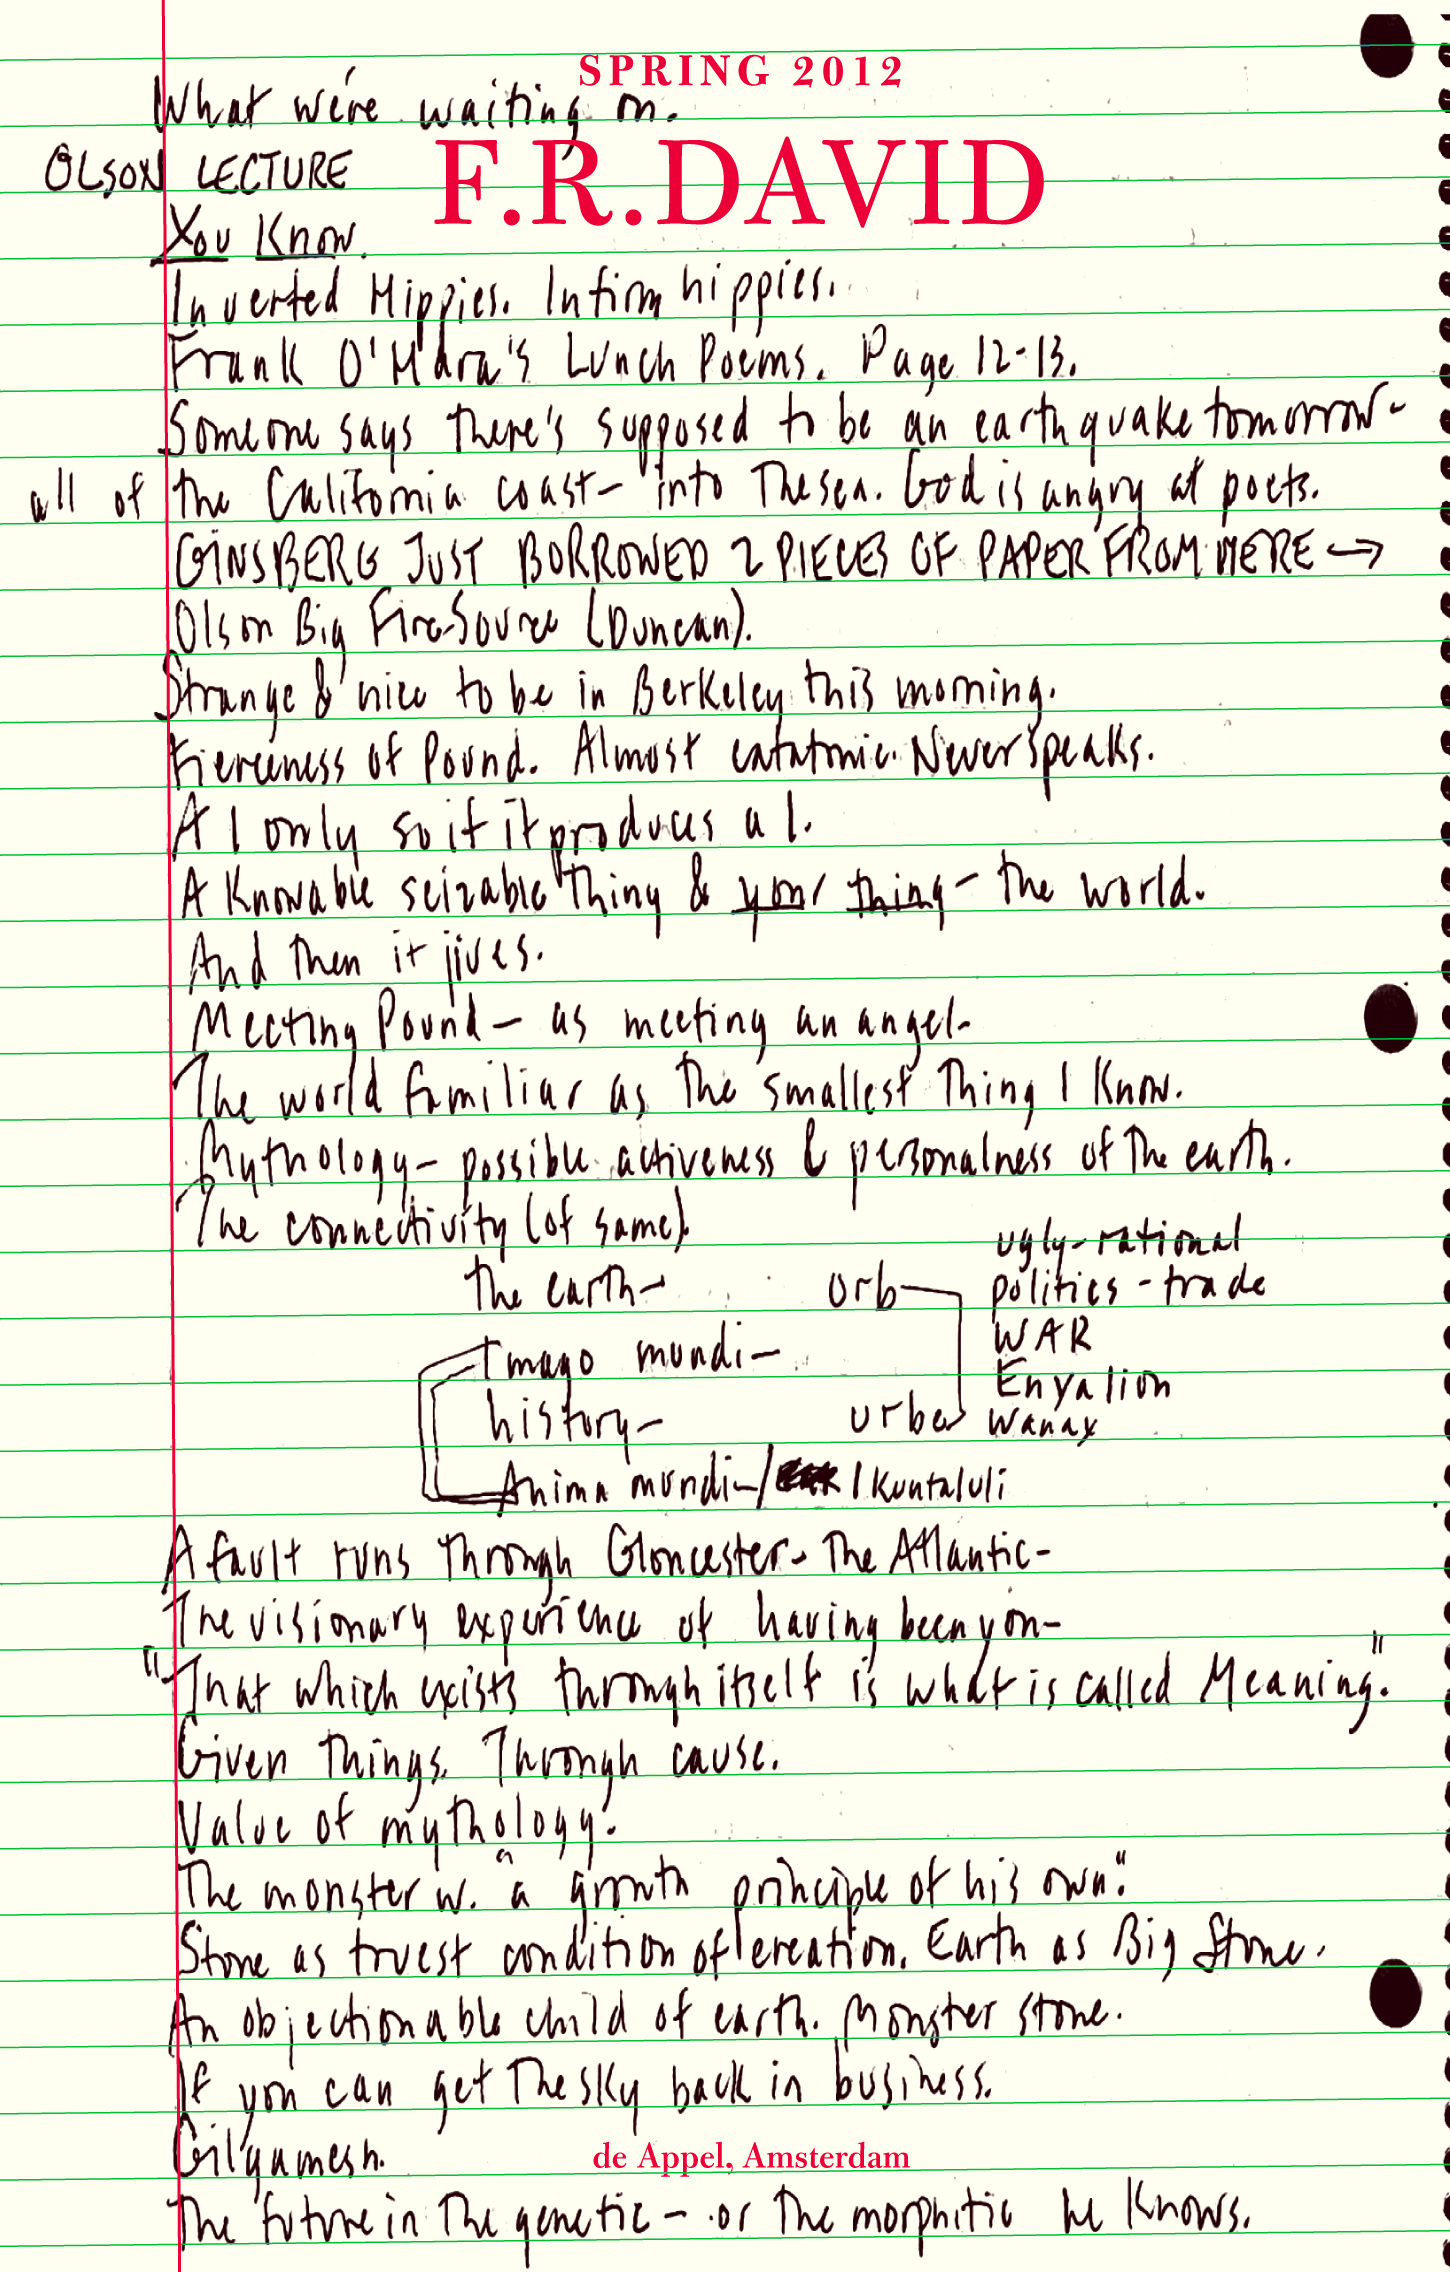 SPRING 2012
What we're waiting on.
F.R.DAVID
OLSON LECTURE
You Know.
Inverted Hippies. Infirm hippies.
Frank O'Hara's Lunch Poems. Page 12-13.
Someone says there's supposed to be an earthquake tomorrow-
all of the California coast- into the sea. God is angry at poets.
GINSBERG JUST BORROWED 2 PIECES OF PAPER FROM HERE →
Olson Big Fire-Source (Duncan).
Strange & nice to be in Berkeley this morning.
Fierceness of Pound. Almost catatonic. Never speaks.
A 1 only so if it produces a 1.
A Knowable seizable thing & your thing - the world.
And then it jives.
Meeting Pound - as meeting an angel-
The world familiar as the smallest thing I know.
Mythology - possible activeness & personalness of the earth.
The connectivity (of same).
ugly-rational
the earth- orb politics - trade
WAR
Imago mundi-
Enyalion
history- urbs wanax
Anima mundi-/ Ikuntaluli
A fault runs through Gloucester - the Atlantic-
The visionary experience of having been you-
"That which exists through itself is what is called Meaning".
Given things. Through cause.
Value of mythology:
The monster w. "a growth principle of his own".
Stone as truest condition of creation. Earth as Big Stone.
An objectionable child of earth. Monster stone.
If you can get the sky back in business.
Gilgamesh.
de Appel, Amsterdam
The future in the genetic - or the morphitic he knows.